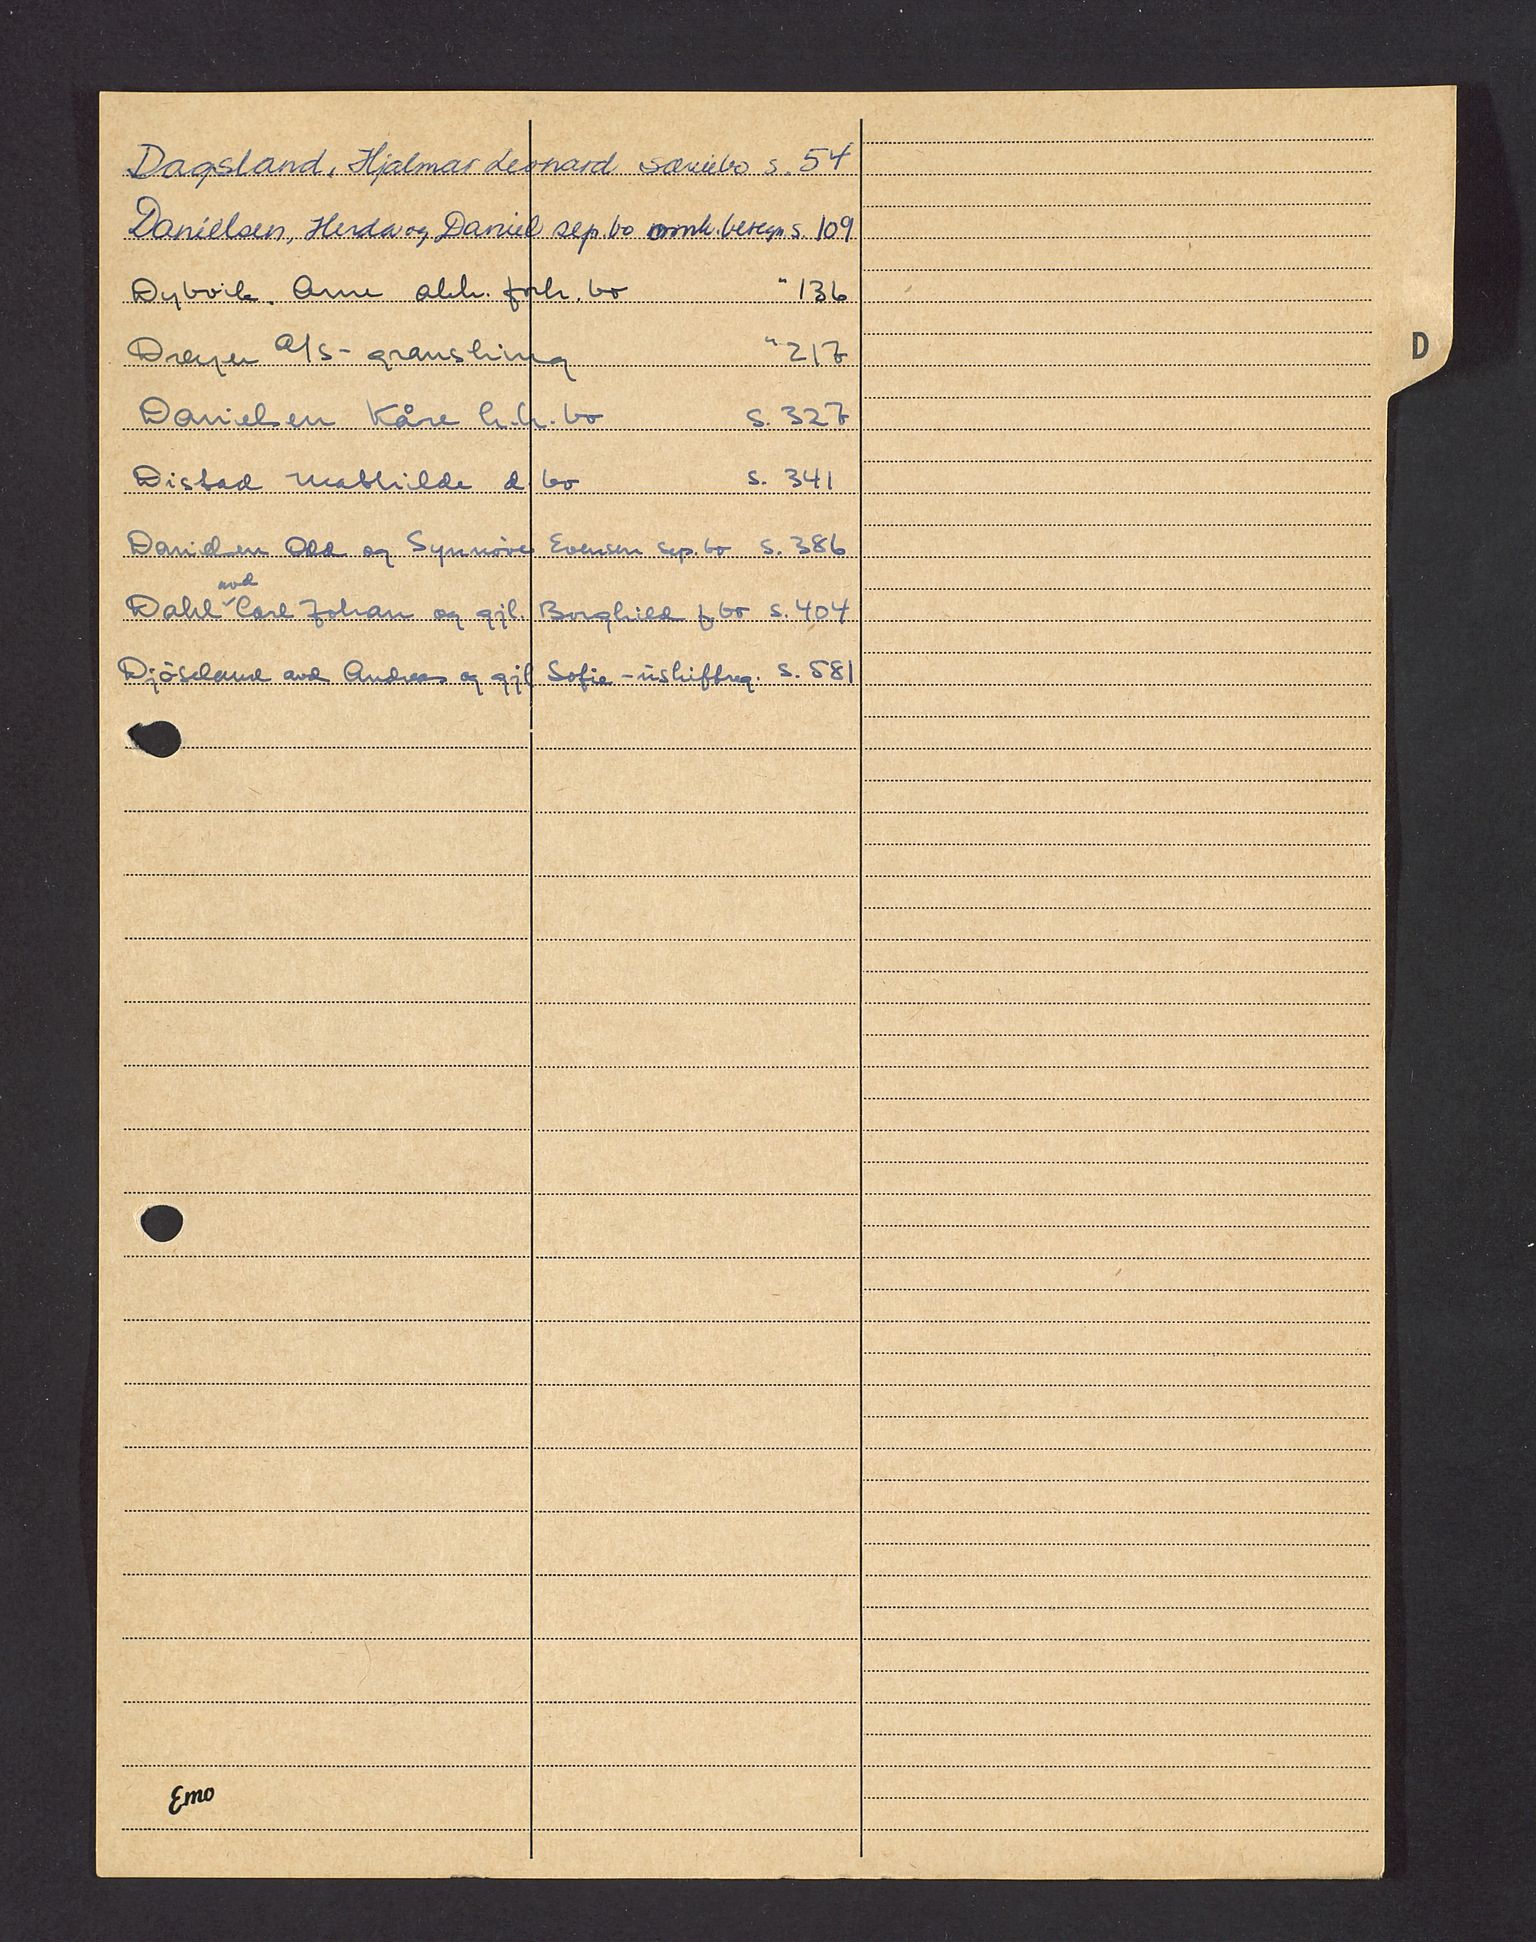 Dagsland, Hjalmar Leonard særeiebo s. 54
Danielsen, Herda og Daniel sep.bo omk.beregn s. 109
Dybvik. Arne akk. forh. bo " 136
Dreyer A/S - granskning " 217
Danielsen Kåre h.h. bo s. 327
Distad Mathilde d. bo s. 341
Danielsen Odd og Synnøve Evensen sep.bo s. 386
avd
Dahl Carl Johan og gjl. Borghild f bo s. 404
Djøseland avd Andreas og gjl Sofie - uskifteq. s. 581
D
Emo